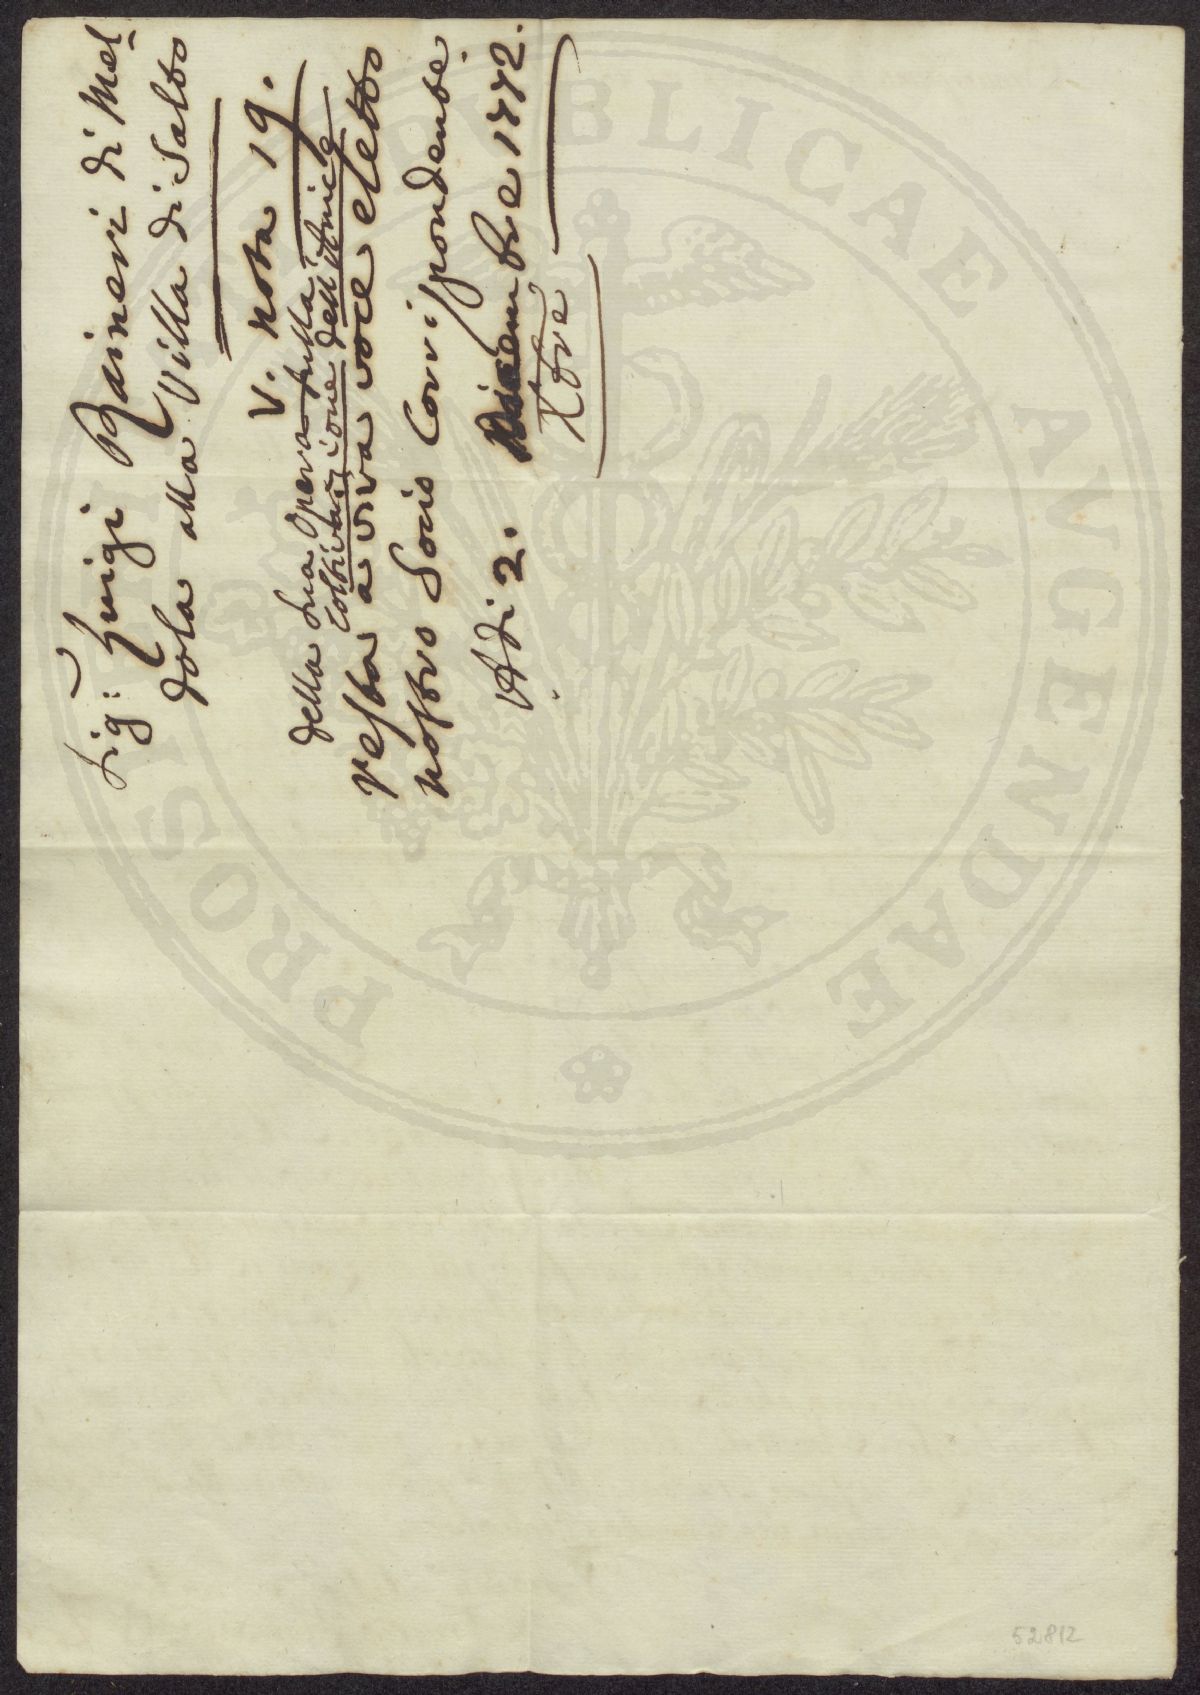 Sig:r Luigi Raineri di Mel
dola alla Villa di Salto
V. nota 19.
della sua Opera sulla
Coltivazione dell'Amice
resta a viva voce eletto
nostro Socio Corrispondente.
Adi 2. Dicembre 1772.
Xbre
PROSPERITATI PUBLICAE AVGENDAE
52812